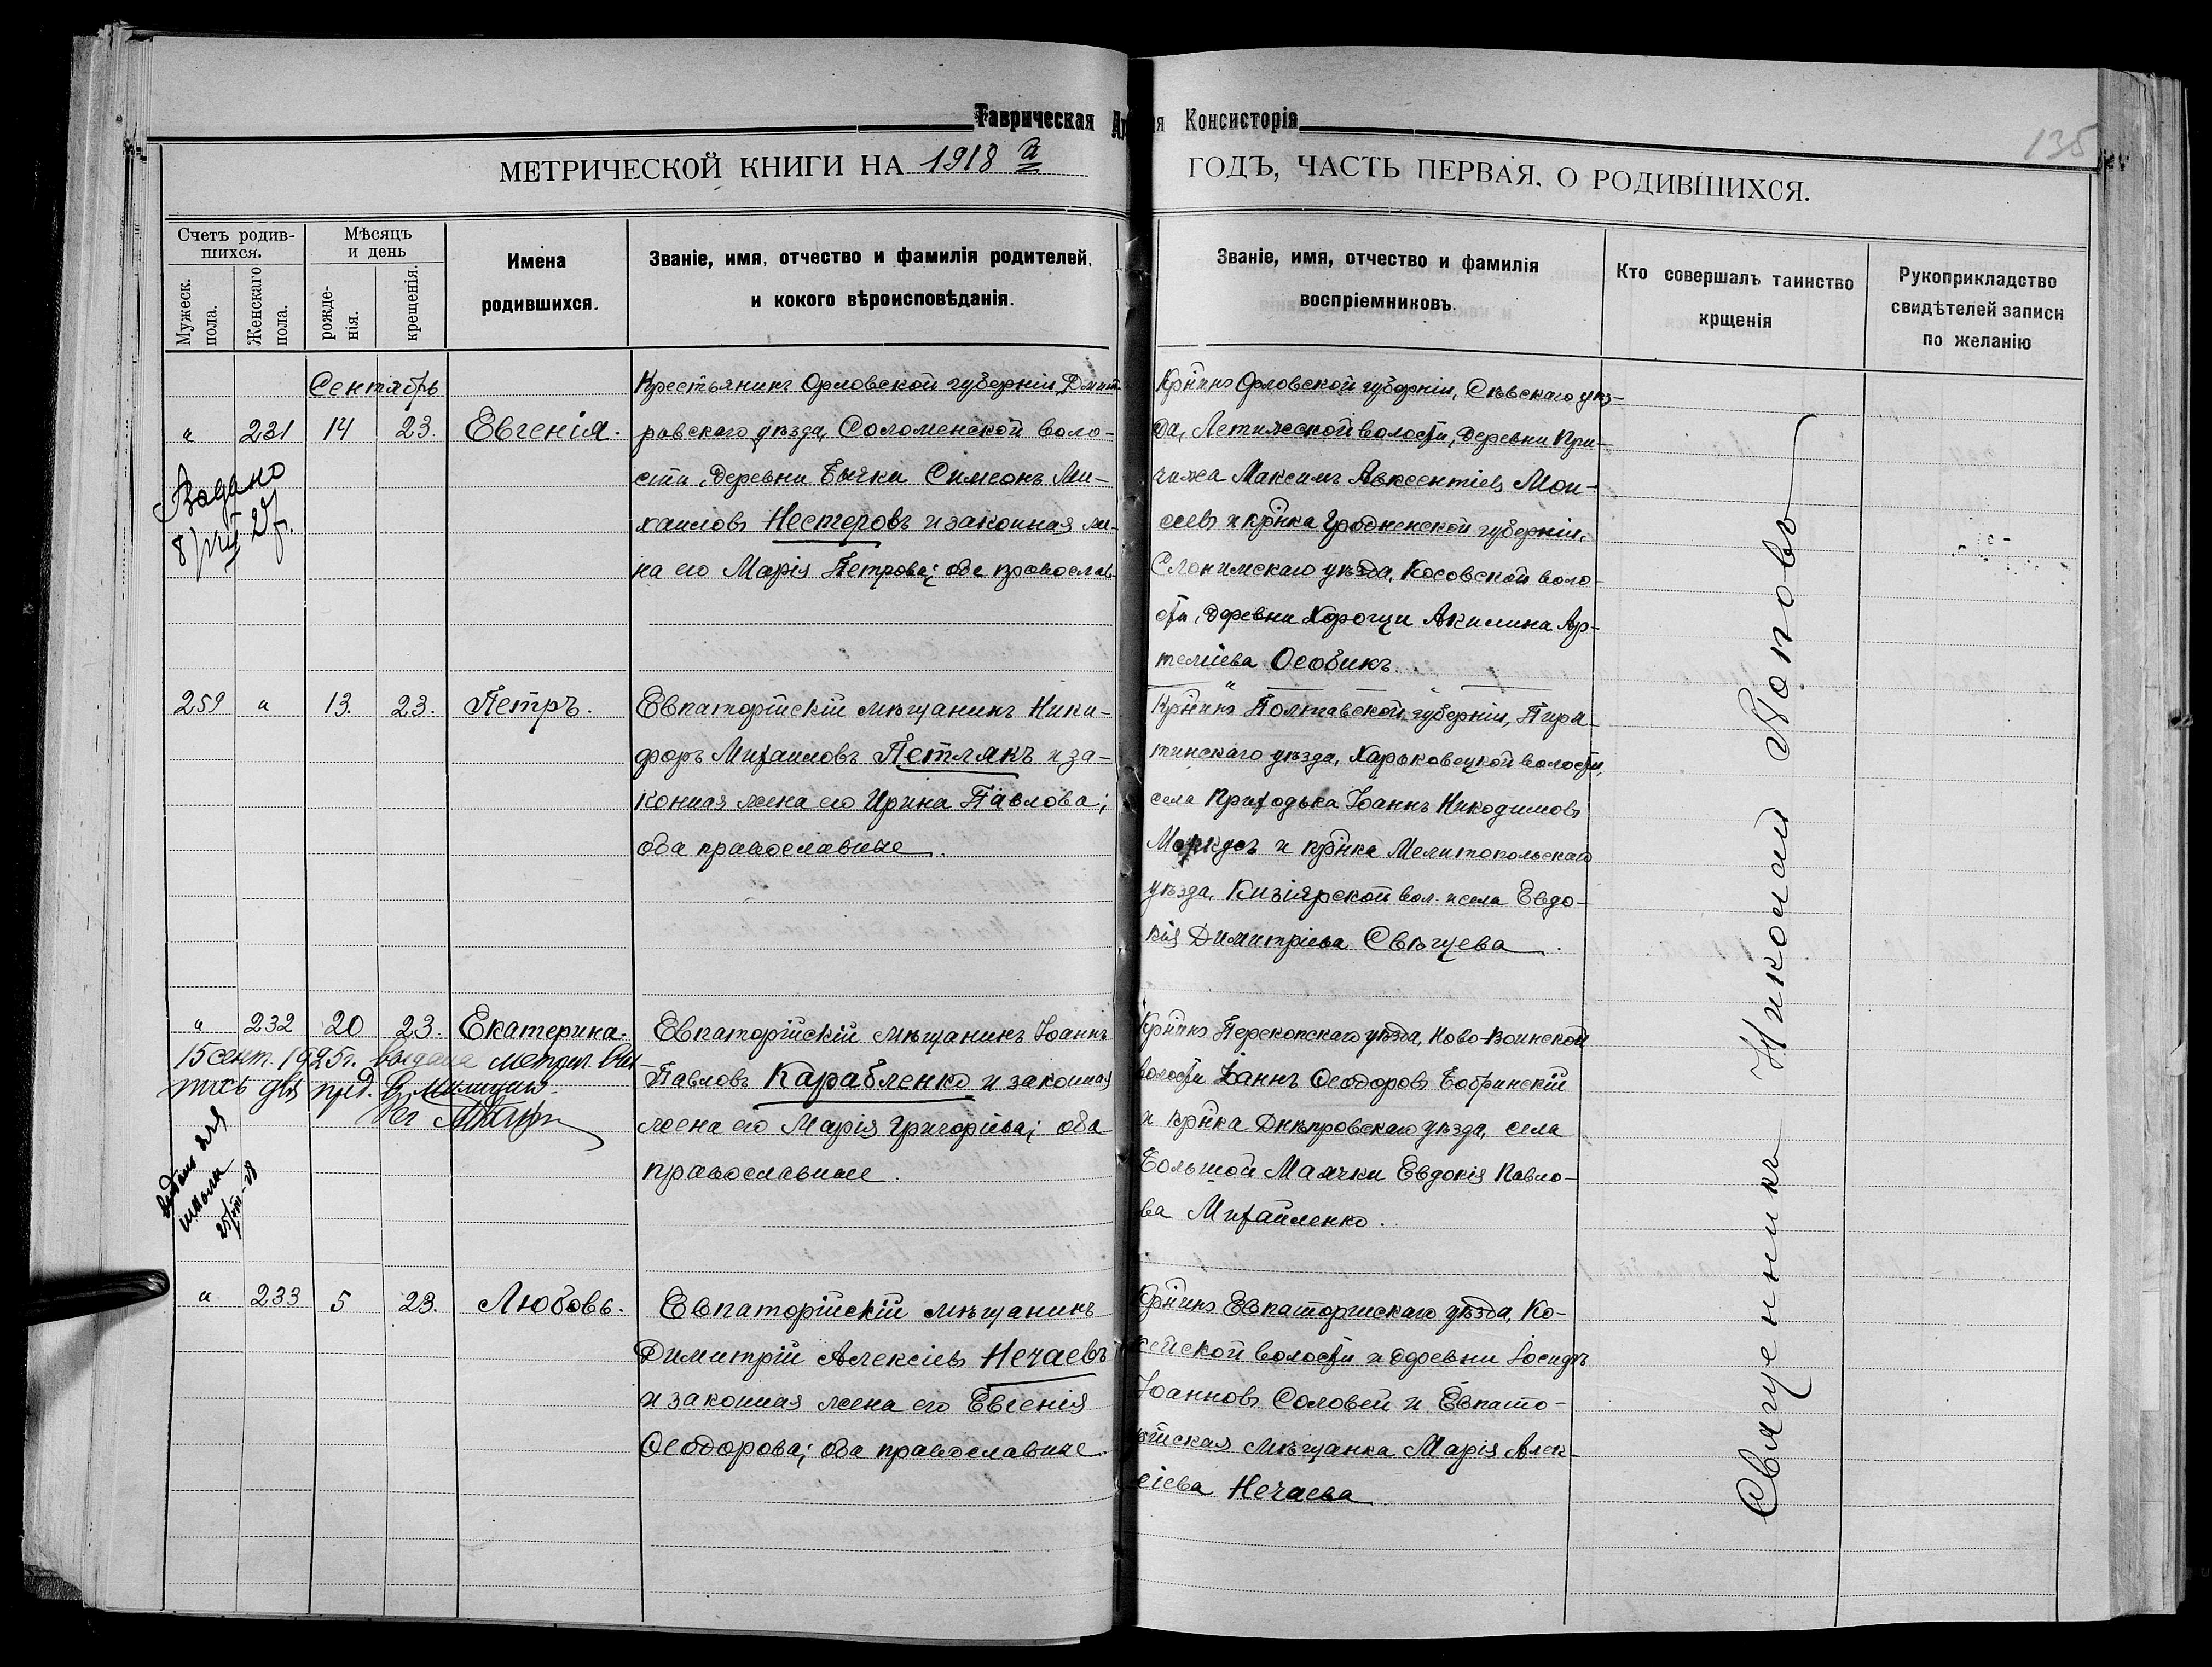 Таврическая
я Консисторія
135
МЕТРИЧЕСКОЙ КНИГИ НА 1918 й
ГОДЪ, ЧАСТЬ ПЕРВАЯ, О РОДИВШИХСЯ.
Счетъ родив-
шихся.
Мужеск. пола.
Женскаго пола.
Мѣсяцъ
и день
рожде-
нія.
крещенія.
Имена
родившихся.
Званіе, имя, отчество и фамилія родителей,
и кокого вѣроисповѣданія.
Званіе, имя, отчество и фамилія
воспріемниковъ.
Кто совершалъ таинство
крщенія
Рукоприкладство
свидѣтелей записи
по желанію
Сентябрь
" 231 14 23. Евгенія.
Крестьянинъ Орловской губерніи, Дмит-
ровскаго уѣзда, Соломенской воло-
сти, деревни Бычки Симеонъ Ми-
хаиловъ Нестеровъ и законная же-
на его Марія Петрова; оба православ
Кр̃нинъ Орловской губерніи, Сѣвскаго уѣз-
да, Летяжской волости, деревни При-
чижа Максимъ Авксентіевъ Мои-
сеевъ и кр̃нка Гродненской губерніи,
Слонимскаго уѣзда, Косовской воло-
сти, деревни Хорощи Акилина Ар-
теміева Особикъ.
259 " 13. 23. Петръ.
Евпаторійскій мѣщанинъ Ники-
форъ Михаиловъ Петлякъ и за-
конная жена его Ирина Павлова;
оба православные.
Кр̃нинъ Полтавской губерніи, Пиря-
тинскаго уѣзда, Харьковецкой волости,
села Приходька Іоаннъ Никодимовъ
и кр̃нка Мелитопольскаго
уѣзда, Кизіярской вол. и села Евдо-
кія Димитріева Свѣщева.
" 232 20 23. Екатерина.
15 сент. 1925г. выдана метрич. вып
ись для пред. в милицию
выдано для
школы
Евпаторійскій мѣщанинъ Іоаннъ
Павловъ Карабленко и законная
жена его Марія Григоріева; оба
православные.
Кр̃нинъ Перекопскаго уѣзда, Ново-Воинской
волости Іоаннъ Ѳеодоровъ Бобринскій
и кр̃нка Днѣпровскаго уѣзда, села
Большой Маячки Евдокія Павло-
ва Михайленко.
" 233 5 23. Любовь.
Евпаторійскій мѣщанинъ
Димитрій Алексіевъ Нечаевъ
и законная жена его Евгенія
Ѳеодорова; оба православные.
Кр̃нинъ Евпаторійскаго уѣзда, Ко-
ейской волости и деревни Іосифъ
Іоанновъ Соловей и Евпато-
рійская мѣщанка Марія Алек-
сіева Нечаева
Священникъ Николай Поповъ